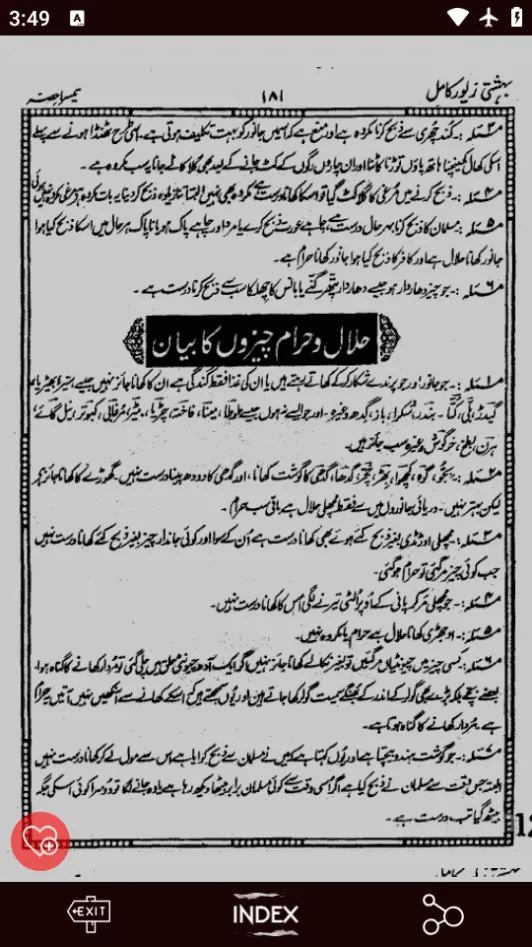 3:49
A
بہشتی زیور کامل
۱۸۱
تیسرا حصہ
مسئلہ ۳:۔ کند چھری سے ذبح کرنا مکروہ ہے اور منع ہے کہ اس میں جانور کو بہت تکلیف ہوتی ہے۔ اسی طرح ٹھنڈا ہونے سے پہلے
اسکی کھال کھینچنا ہاتھ پاؤں توڑنا کاٹنا اور ان چاروں رگوں کے کٹ جانے کے بعد بھی گلا کاٹے جانا یہ سب مکروہ ہے۔
مسئلہ ۴:۔ ذبح کرنے میں مرغی کا گلا کٹ گیا تو اسکا کھانا درست ہے مکروہ بھی نہیں البتہ اتنا زیادہ ذبح کر دینا یہ بات مکروہ ہے مرغی مکروہ نہیں ہوئی
مسئلہ ۵:۔ مسلمان کا ذبح کرنا بہرحال درست ہے، چاہے عورت ذبح کرے یا مرد اور چاہے پاک ہو یا ناپاک ہر حال میں اسکا ذبح کیا ہوا
جانور کھانا حلال ہے اور کافر کا ذبح کیا ہوا جانور کھانا حرام ہے۔
مسئلہ ۶:۔ جو چیز دھاردار ہو جیسے دھاردار پتھر گنے یا بانس کا چھلکا سب سے ذبح کرنا درست ہے۔
حلال و حرام چیزوں کا بیان
مسئلہ ۱:۔ جو جانور اور جو پرندے شکار کر کے کھاتے پیتے ہیں یا ان کی غذا فقط گندگی ہے ان کا کھانا جائز نہیں جیسے، شیر، بھیڑیا،
گیدڑ، بلی، کتا، بندر، شکرا، باز، گدھ وغیرہ۔ اور جو ایسے نہ ہوں جیسے طوطا، مینا، فاختہ، چڑیا، بٹیر، مرغابی، کبوتر، نیل گائے،
ہرن، بطخ، خرگوش وغیرہ سب جائز ہیں۔
مسئلہ ۲:۔ بجو، گوہ، کچھوا، بھڑ، خچر، گدھا، گدھی کا گوشت کھانا، اور گدھی کا دودھ پینا درست نہیں۔ گھوڑے کا کھانا جائز ہے
لیکن بہتر نہیں۔ دریائی جانوروں میں سے فقط مچھلی حلال ہے باقی سب حرام۔
مسئلہ ۳:۔ مچھلی اور ٹڈی بغیر ذبح کئے ہوئے بھی کھانا درست ہے ان کے سوا اور کوئی جاندار چیز بغیر ذبح کئے کھانا درست نہیں
جب کوئی چیز مر گئی تو حرام ہو گئی۔
مسئلہ ۴:۔ جو مچھلی مر کر پانی کے اوپر الٹی تیرنے لگی اس کا کھانا درست نہیں۔
مسئلہ ۵:۔ اوجھڑی کھانا حلال ہے حرام یا مکروہ نہیں۔
مسئلہ ۶:۔ کسی چیز میں چیونٹیاں مر گئیں تو بغیر نکالے کھانا جائز نہیں اگر ایک آدھ چیونٹی حلق میں چلی گئی تو مردار کھانے کا گناہ ہوا۔
بعضے بچے بلکہ بڑے بھی گولر کے اندر کے بھنگے سمیت گولر کھا جاتے ہیں اور یوں سمجھتے ہیں کہ اسکے کھانے سے آنکھیں نہیں آتیں یہ حرام
ہے۔ مردار کھانے کا گناہ ہوتا ہے۔
مسئلہ ۷:۔ جو گوشت ہندو بیچتا ہے اور یوں کہتا ہے کہ میں نے مسلمان سے ذبح کرایا ہے اس سے مول لے کر کھانا درست نہیں
البتہ جس وقت سے مسلمان نے ذبح کیا ہے اگر اسی وقت سے کوئی مسلمان برابر بیٹھا دیکھ رہا ہے یا وہ جانے لگا تو دوسرا کوئی اسکی جگہ
بیٹھ گیا تب درست ہے۔
EXIT
INDEX